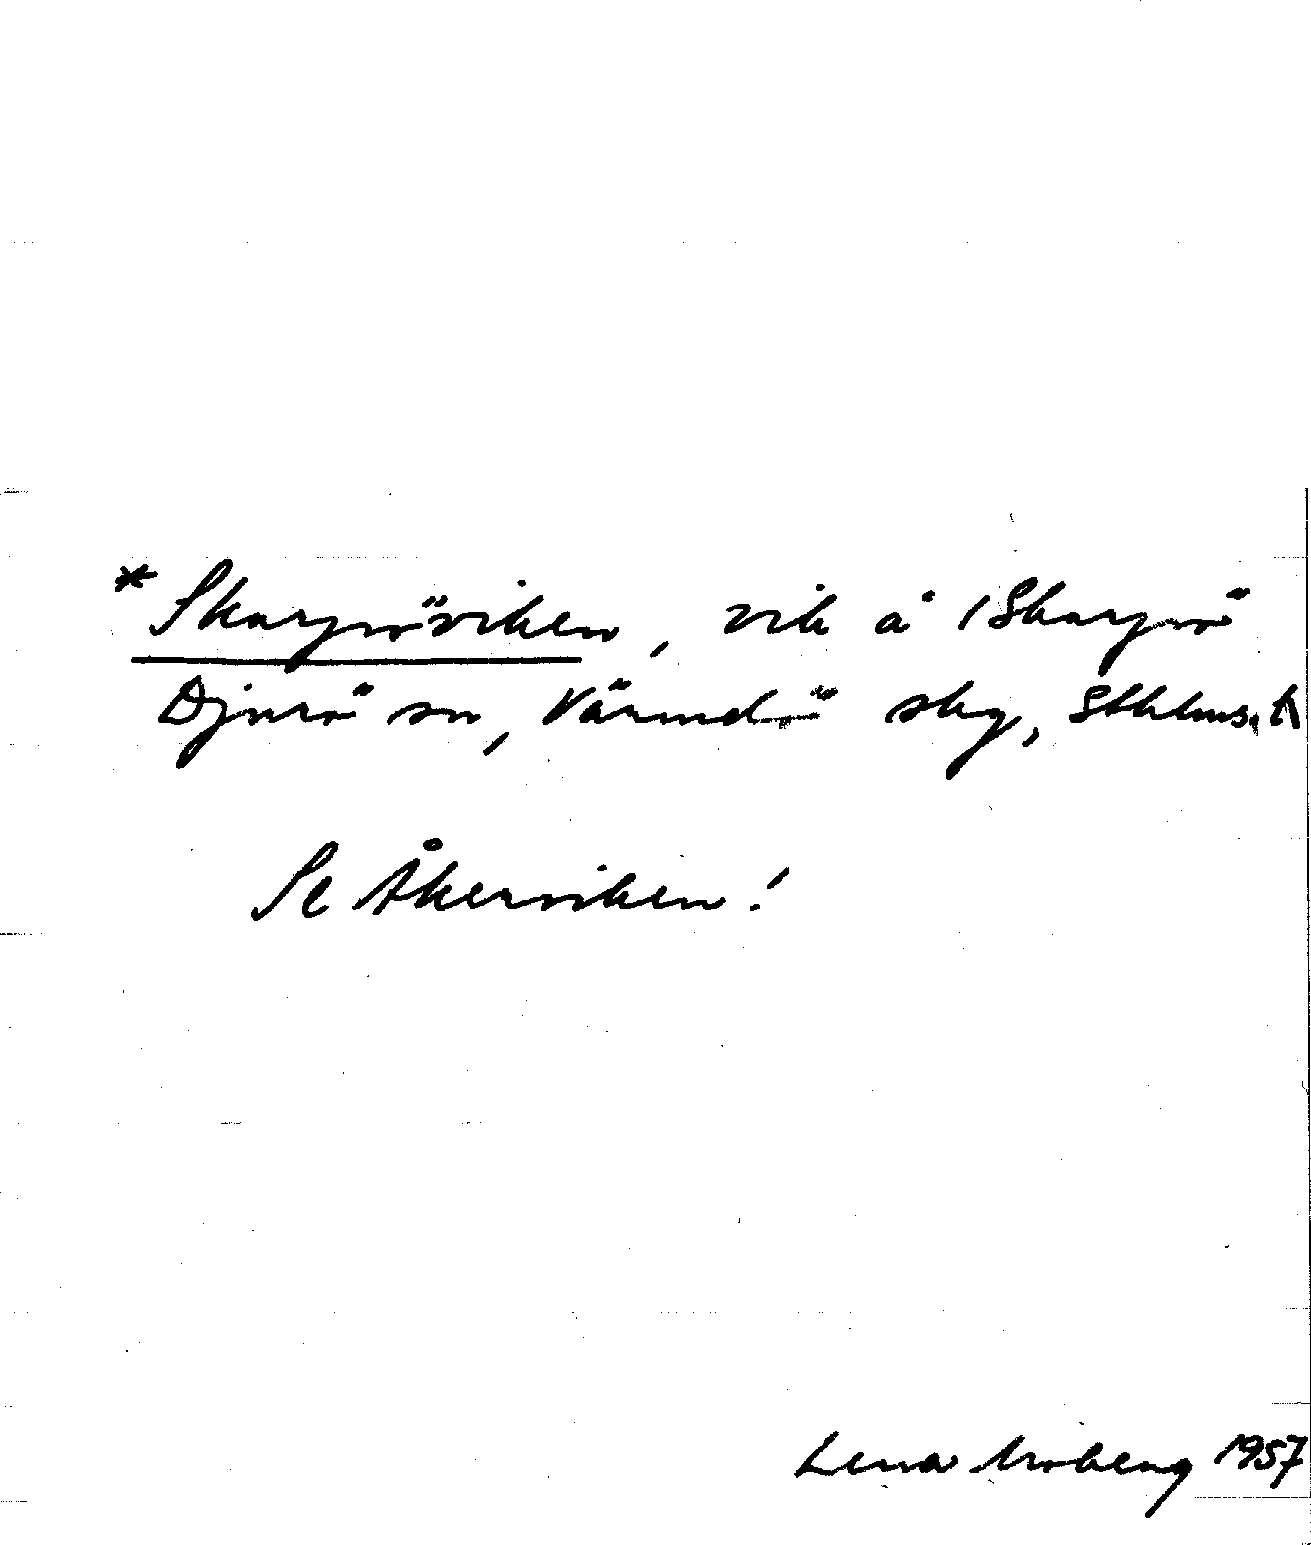 * Skarpöviken, vik å /Skarpö
Djurö sn, Värmdö skg, Sthlms. l.
Se Åkerviken!
Lena Moberg 1957